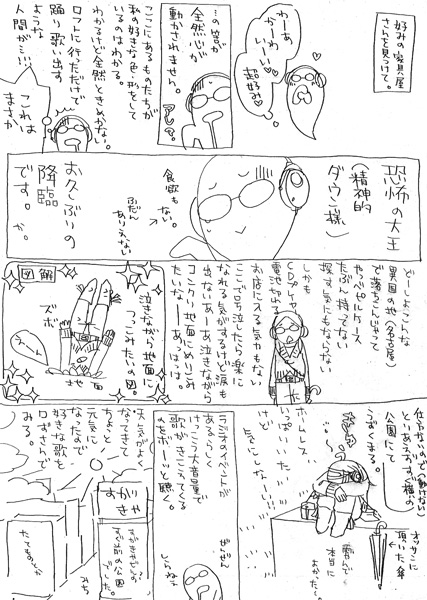 好みの家具屋
さんを見つけて。
わーあ
かーわ
いーい
超好み
…の筈が
全然心が
動かされません。
アレ?
ここにあるものたちが
私の好きな色・形をして
いるのはわかる。
わかるけど全然ときめかない。
ロフトに行っただけで
踊り歌い出す
ような
人間が…!!!
これは
まさか
恐怖の大王
(精神的
ダウン様)
食欲も
ない。
ふだん
ありえない
お久しぶりの
降臨
です。
か。
どーしよこんな
異国の地(名古屋)
で落ちこんじゃって
やべピルケース
たぶん持ってない
探す気にもならない
しかも
CDプレーヤー
電池切れる
お店に入る気もない
ここで号泣したら楽に
なれる気がするけど涙も
出ないあーあ泣きながら
コンクリ地面にめりこみ
たいなーあーあはっは
図解
泣きながら地面に
つっこみたいの図。
ズボ
うえーん
地面
仕方ないので(動けない)
とりあえずすぐ横の
公園にて
うずくまる。
オッサンに
頂いた傘
雪んで
本当に
よかった〜。
ホームレス
いっぱいいた
けど
気にしない…
ラジオのイベントが
あるらしく
けっこう大音量で
歌がきこえてくる
のをボーッと聴く。
ぜんぜん
しらねー
天気がよく
なってきて
ちょっと
元気に
なったので
好きな歌を
口ずさんで
みる。
すがきや
すがきやさんの
すぐ前の公園
でした。
みち
たてものとか